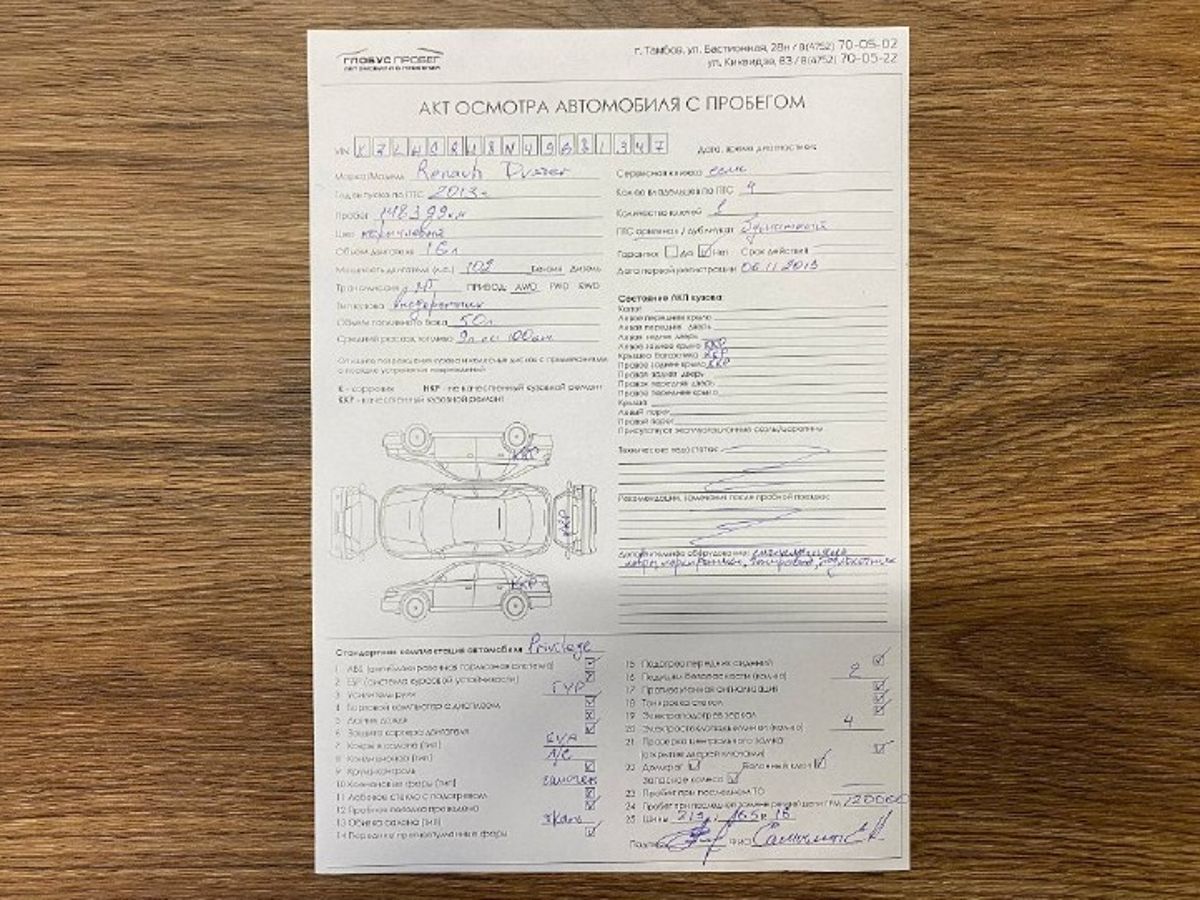 ГЛОБУС ПРОБЕГ
АВТОМОБИЛИ С ПРОБЕГОМ
г. Тамбов, ул. Бастионная, 28н / 8(4752) 70-05-02
ул. Киквидзе, 83 / 8(4752) 70-05-22
АКТ ОСМОТРА АВТОМОБИЛЯ С ПРОБЕГОМ
VIN
Дата, время диагностики:
Марка/Модель Renault Duster
Год выпуска по ПТС 2013 г
Пробег
Цвет коричневый
Объем двигателя 1.6 л
Мощность двигателя (л.с.) 102 Бензин Дизель
Трансмиссия МТ ПРИВОД: AWD FWD RWD
Тип кузова внедорожник
Объем топливного бака 50 л
Средний расход топлива 9л на 100км
Сервисная книжка есть
Кол-во владельцев по ПТС 4
Количество ключей
ПТС оригинал / дубликат
Гарантия Да Нет Срок действия
Дата первой регистрации 06.11.2013
Опишите повреждения кузова и колесных дисков с примечаниями
о порядке устранения повреждений
К - коррозия НКР - не качественный кузовной ремонт
ККР - качественный кузовной ремонт
Состояние ЛКП кузова:
Капот
Левое переднее крыло
Левая передняя дверь
Левая задняя дверь
Левое заднее крыло ККР
Крышка багажника ККР
Правое заднее крыло ККР
Правая задняя дверь
Правая передняя дверь
Правое переднее крыло
Крыша
Левый порог
Правый порог
Присутствуют эксплуатационные сколы/царапины
Технические недостатки:
Рекомендации, замечания после пробной поездки:
Дополнительное оборудование: сигнализация
тонировка, подлокотник
ККР
ККР
ККР
Стандартная комплектация автомобиля Privilege
1 АБС (антиблокировочная тормозная система)
2 ЕБР (система курсовой устойчивости)
3 Усилитель руля ГУР
4 Бортовой компьютер с дисплеем
5 Датчик дождя
6 Защита картера двигателя
7 Ковры в салоне (тип) EVA
8 Кондиционер (тип)
9 Круиз-контроль
10 Ксеноновые фары (тип) галоген
11 Лобовое стекло с подогревом
12 Пробная поездка проведена
13 Обивка салона (тип) ткань
14 Передние противотуманные фары
15 Подогрев передних сидений
16 Подушки безопасности (кол-во) 2
17 Противоугонная сигнализация
18 Тонировка стекол
19 Электроподогрев зеркал
20 Электростеклоподъемники (кол-во) 4
21 Проверка центрального замка
(открытие дверей ключами)
22 Домкрат Балонный ключ
Запасное колесо
23 Пробег при последнем ТО
24 Пробег при последней замене ремней/цепи ГРМ 120000
25 Шины 215 / 65 R 16
Подпись ФИО